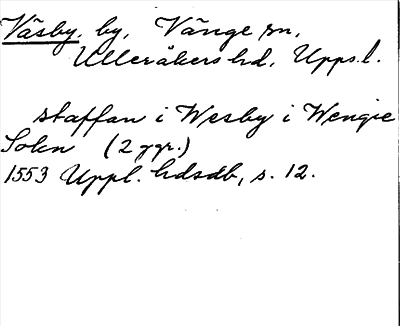 Väsby, by, Vänge sn,
Ulleråkers hd, Upps.l.
staffan i Wesby i Wengie
Sokn (2 ggr.)
1553 Uppl. hdsdb, s. 12.